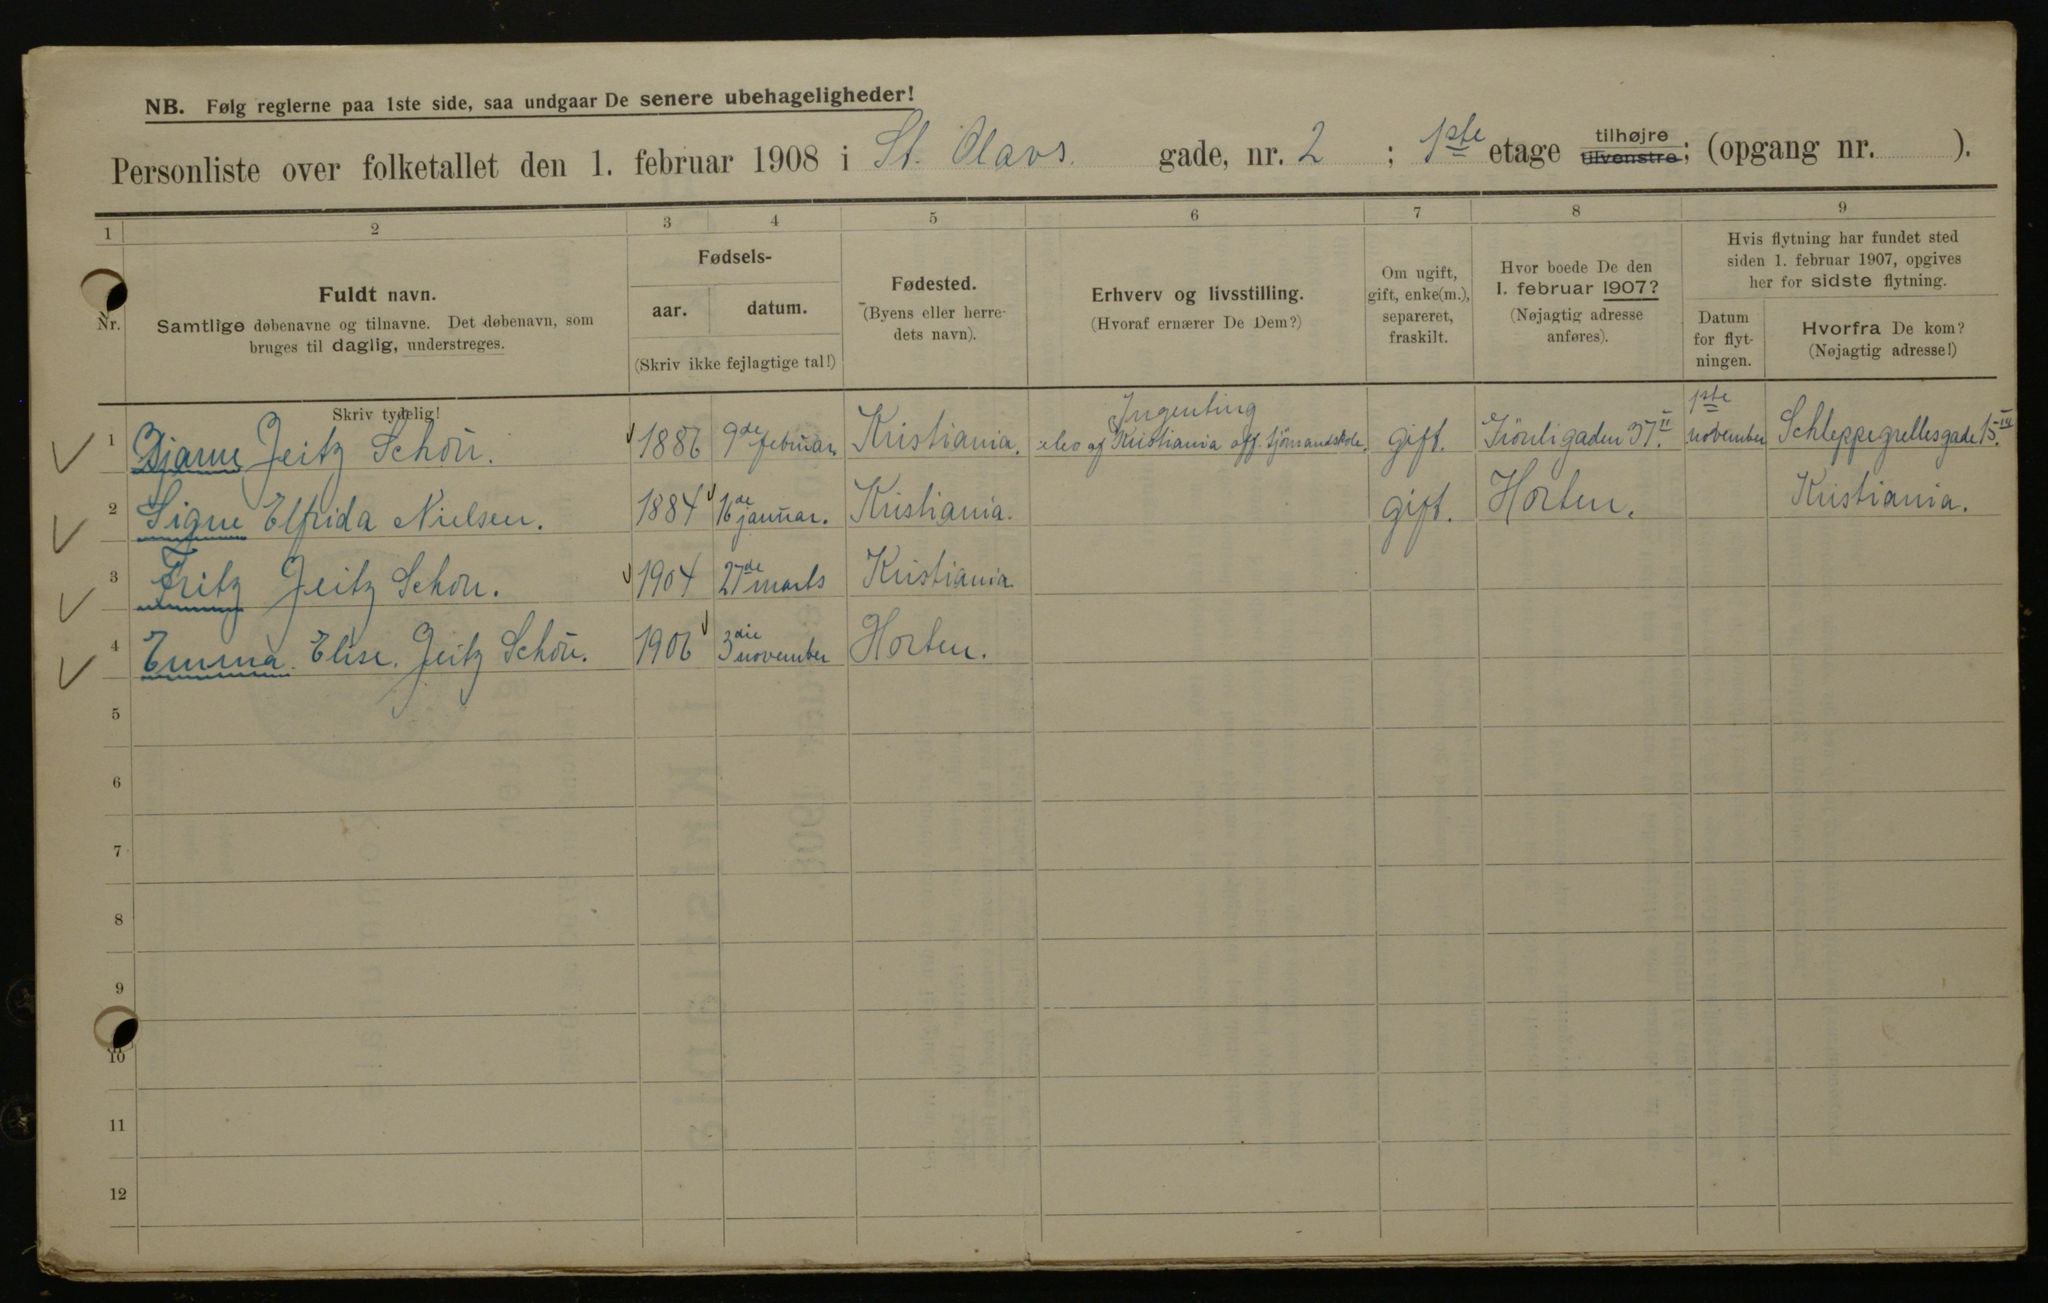 NB. Følg reglerne paa 1ste side, saa undgaar De senere ubehageligheder!
Personliste over folketallet den 1. februar 1908 i St. Olavs gade, nr. 2 ; 1ste etage tilhøjre tilvenstre; (opgang nr. ).
1 2 3 4 5 6 7 8 9
Nr.
Fuldt navn.
Samtlige døbenavne og tilnavne. Det døbenavn, som
bruges til daglig, understreges.
Fødsels-
aar. datum.
(Skriv ikke fejlagtige tal!)
Fødested.
(Byens eller herre-
dets navn).
Erhverv og livsstilling.
(Hvoraf ernærer De Dem?)
Om ugift,
gift, enke(m.),
separeret,
fraskilt.
Hvor boede De den
1. februar 1907?
(Nøjagtig adresse
anføres).
Hvis flytning har fundet sted
siden 1. februar 1907, opgives
her for sidste flytning.
Datum
for flyt-
ningen.
Hvorfra De kom?
(Nøjagtig adresse!)
Skriv tydelig!
Ingenting
1 Bjarne Jeitz Schou. 1886 9de februar. Kristiania. elev af Kristiania off. sjömandskole. gift. Grönligaden 37.II 1ste november Schleppegrellesgade 15.III
2 Signe Elfrida Nielsen. 1884 16de januar. Kristiania. gift. Horten. Kristiania.
3 Fritz Jeitz Schou. 1904 27de marts Kristiania
4 Emma. Elise. Jeitz Schou. 1906 3die november Horten.
5
6
7
8
9
10
11
12